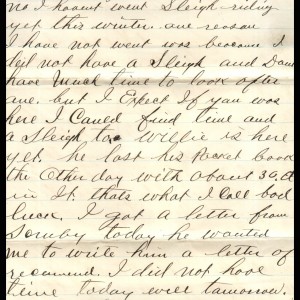 no I havent went Sleigh-riding
yet this winter. one reason
I have not went was because I
did not have a Sleigh and Dont
have Much time to look after
one. but I Expect If you was
here I Could find time and
a Sleigh to. Willie is here
yet. he lost his Pocket Book
the Other day with about 30,
in It. thats what I Call bad
luck. I got a letter from
today he wanted
me to write him a letter of
recomend. I did not have
time today will tomorrow.